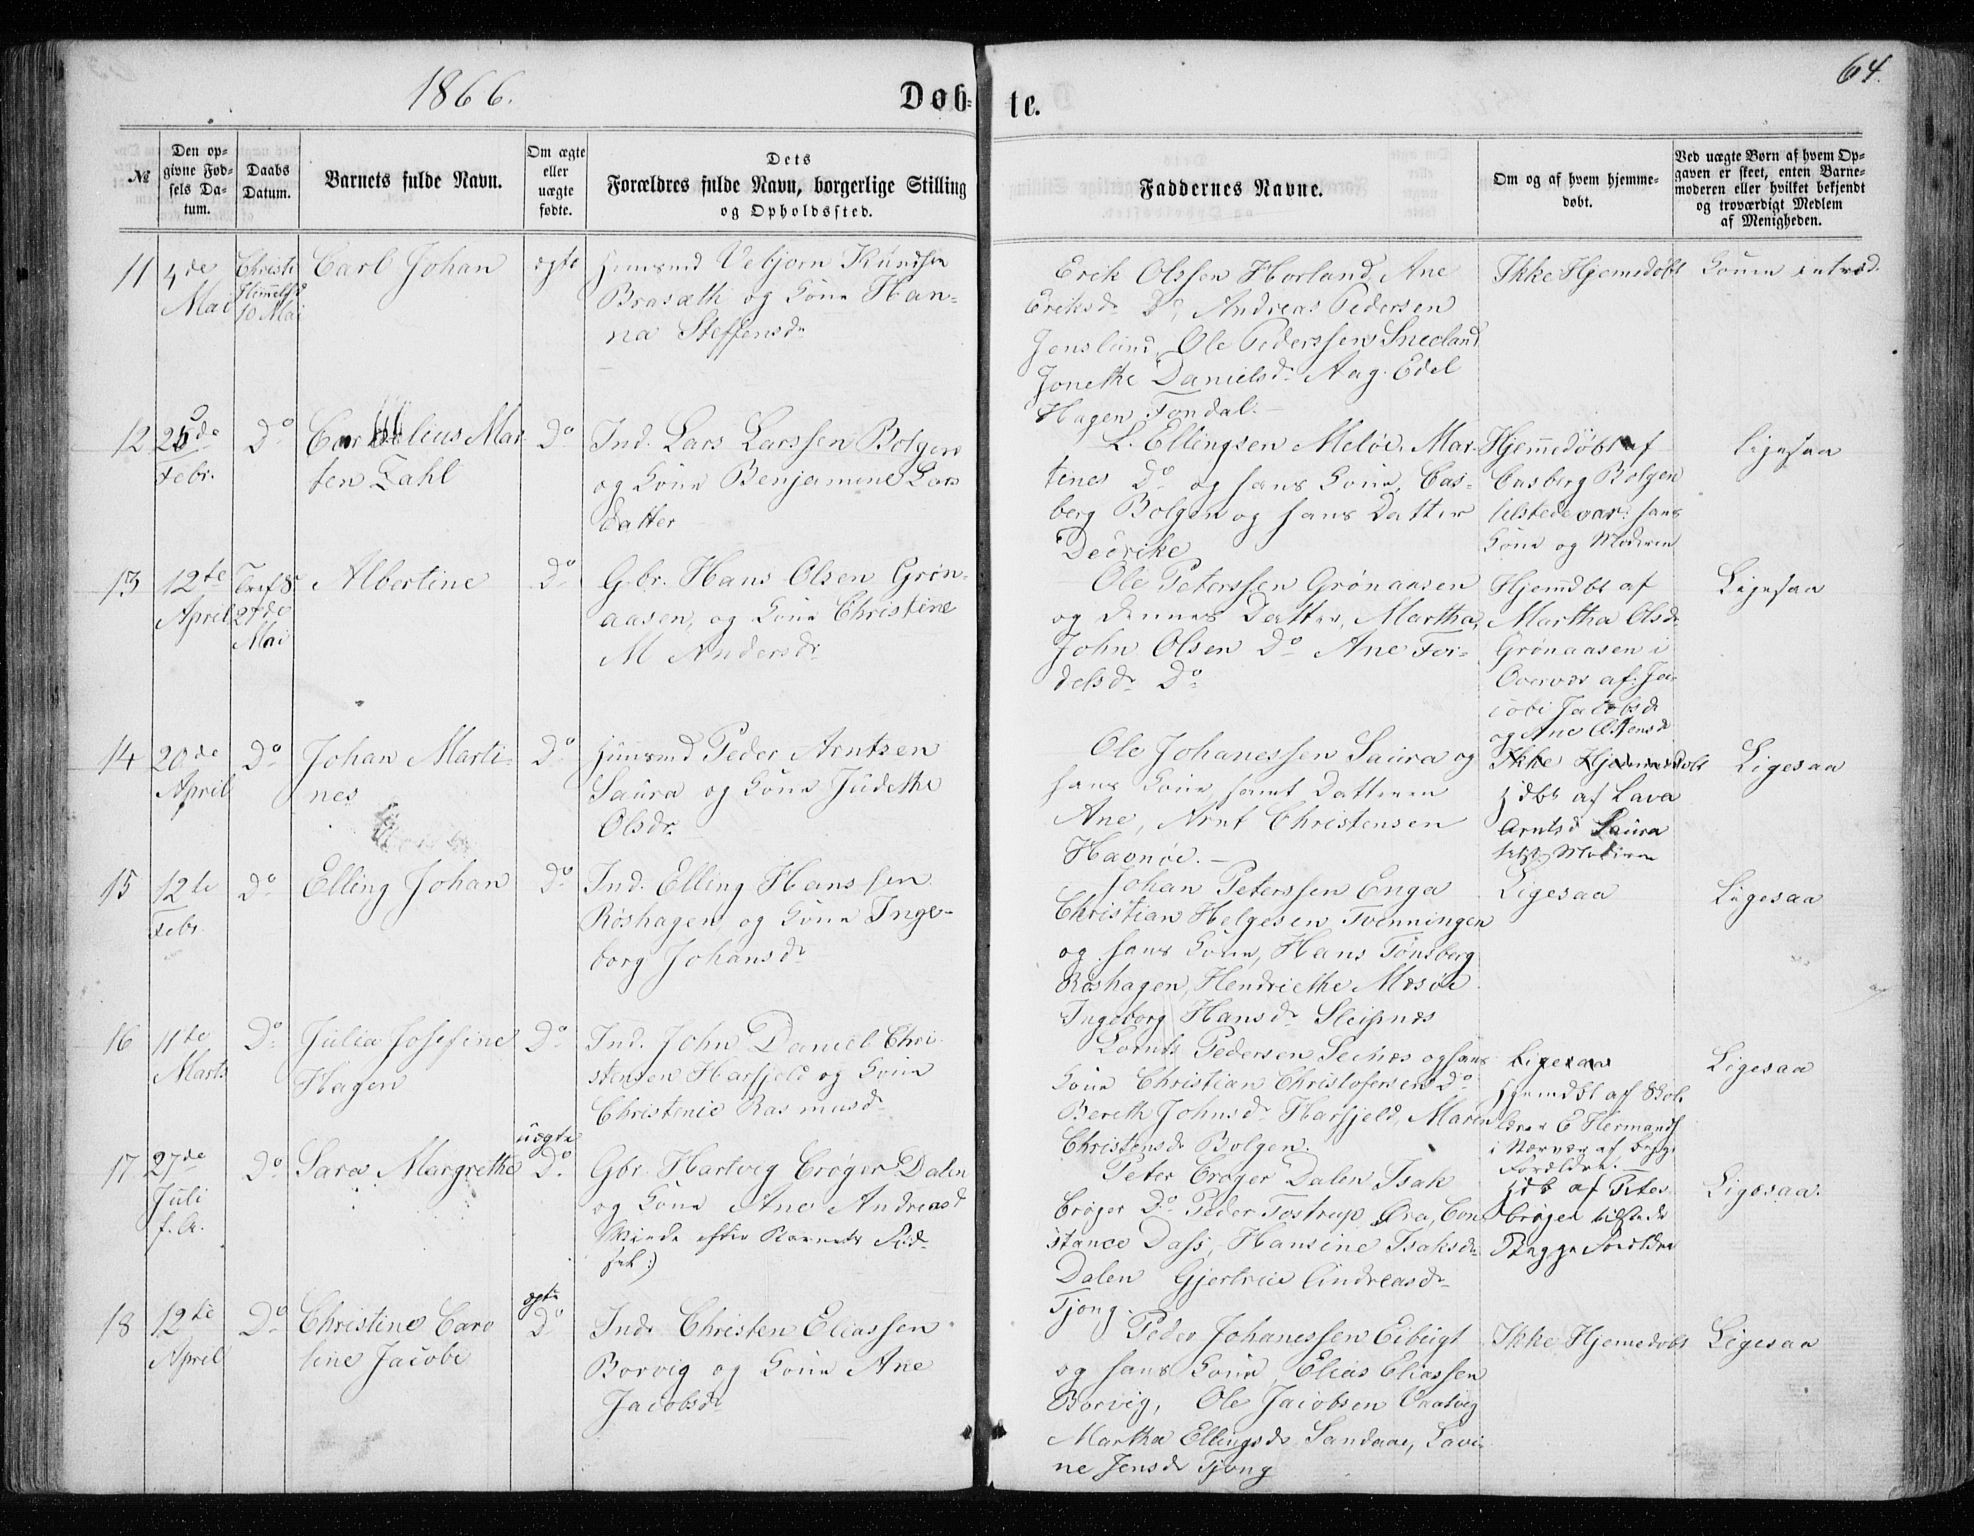 1866.
Døb-
te.
64.
№
Den op-
givne Fød-
sels Da-
tum.
Daabs
Datum.
Barnets fulde Navn.
Om ægte
eller
uægte
fødte.
Dets
Forældres fulde Navn, borgerlige Stilling
og Opholdssted.
Faddernes Navne.
Om og af hvem hjemme-
døbt.
Ved uægte Børn af hvem Op-
gaven er skeet, enten Barne-
moderen eller hvilket bekjendt
og troværdigt Medlem
af Menigheden.
11
4de
Mai
Christi
Himmelfd
10 Mai
Carl Johan
ægte
Huusmd Vebjørn Knudsen
Brasæth og Kone Han-
na Steffensdr
Erik Olssen Horland, Ane
Eriksdr Do, Andreas Pedersen
Jensland, Ole Pederssen Sneeland
Jonethe Danielsdr Aag. Edel
Hagen Fondal.
Ikke Hjemedøbt
Konen introd.
12
Febr.
Do
Cornelius Mar
ten Zahl
Do
Ind. Lars Larssen Bolgen
og Kone Benjamine Lars
datter
L. Ellingsen Meløe, Mar-
tines Do og hans Kone, Cas-
berg Bolgen og hans Datter
Dedrike
Hjemmedøbt af
Casberg Bolgen
tilstede var: hans
Kone og Moderen
Ligesaa
13
12te
April
Tref. S
27de
Mai
Albertine
Do
Gbr. Hans Olsen Grøn-
aasen, og Kone Christine
M Andersdr
Ole Peterssen Grønaasen
og dennes Datter, Martha,
John Olsen Do Ane Fri-
delsdr Do
Hjemdbt af
Martha Olsdr
Grønaasen i
Overvær af: Ja-
cobi Jacobsdr
og Ane
Ligesaa
14
20de
April
Do
Johan Marti-
nes
Do
Huusmd Peder Arntsen
Saura og Kone Judethe
Olsdr.
Ole Johanessen Saura og
hans Kone, samt Datteren
Ane, Arnt Christensen
Havnøe.
Ikke Hjemmedøbt
Hjdbt af Lava
Arntsd Saura
tilst. Moderen
Ligesaa
15
12te
Febr
Do
Elling Johan
Do
Ind. Elling Hanssen
Røshagen og Kone Inge-
borg Johansdr
Johan Peterssen Enga
Christian Helgesen Tvenningen
og hans Kone, Hans Tønsberg
Røshagen, Hendriethe Mesøe
Ingeborg Hansdr Sleipnes
Ligesaa
Ligesaa
16
11te
Marts
Do
Julia Josefine
Hagen
Do
Ind. John Daniel Chri-
stensen Harfjeld og Kone
Christenie Rasmusdr
Lornts Pedersen Selnæs og hans
Kone Christian Christofersen Do
Bereth Johnsdr Harfjeld, Maren
Christensdr Bolgen.
Ligesaa
Hjemdbt af Skol-
lærer E Hermands
i Nærvær af begge
Forældre.
Ligesaa
17
27de
Juli
f. A.
Do
Sara Margrethe
uægte
Do
Gbr. Hartvig Crøger Dalen
og Kone Ane Andreasd
(Viede efter Barnets Fød-
sel:)
Peter Crøger Dalen Isak
Crøger Do Peder Tostrup Øra, Con
stance Dass, Hansine Isaksdr
Dalen Gjertrue Andreasdr
Tjong.
Hjdb af Peter
Crøger tilstede
Begge Foreldre
Ligesaa.
18
12te
April
Do
Christine Caro
line Jacobe
ægte
Do
Indr Christen Eliassen
Borvig og Kone Ane
Jacobsdr
Peder Johanessen Eibugt
og hans Kone, Elias Eliassen
Borvig, Ole Jacobsen Vaatvig
Martha Ellingsdr Sandaae, Lavi-
ne Jensdr Tjong
Ikke Hjemedøbt
Ligesaa